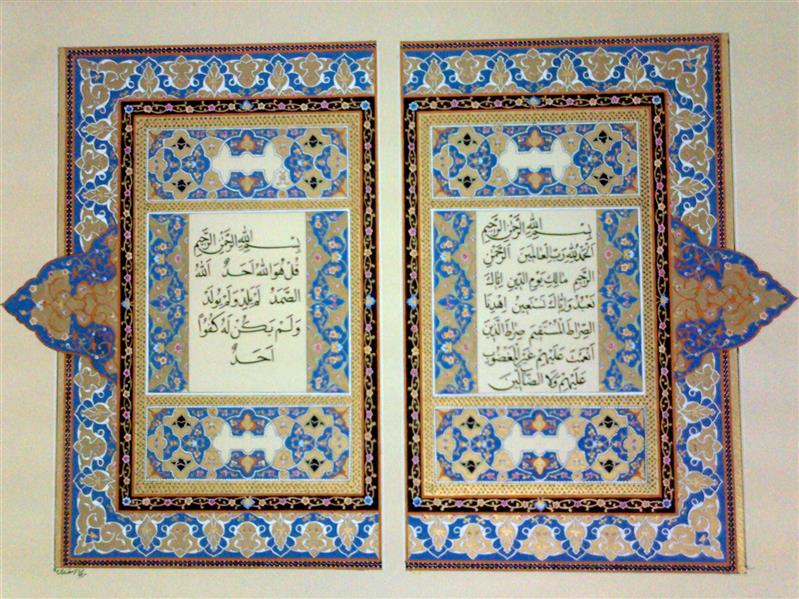 بِسْمِ اللهِ الرَّحْمٰنِ الرَّحِيمِ
اَلْحَمْدُ لِلّٰهِ رَبِّ الْعَالَمِينَ اَلرَّحْمٰنِ
الرَّحِيمِ مَالِكِ يَوْمِ الدِّينِ اِيَّاكَ
نَعْبُدُ وَاِيَّاكَ نَسْتَعِينُ اِهْدِنَا
الصِّرَاطَ الْمُسْتَقِيمَ صِرَاطَ الَّذِينَ
اَنْعَمْتَ عَلَيْهِمْ غَيْرِ الْمَغْضُوبِ
عَلَيْهِمْ وَلَا الضَّالِّينَ
بِسْمِ اللهِ الرَّحْمٰنِ الرَّحِيمِ
قُلْ هُوَ اللهُ اَحَدٌ اَللهُ
الصَّمَدُ لَمْ يَلِدْ وَلَمْ يُولَدْ
وَلَمْ يَكُنْ لَهُ كُفُوًا
اَحَدٌ